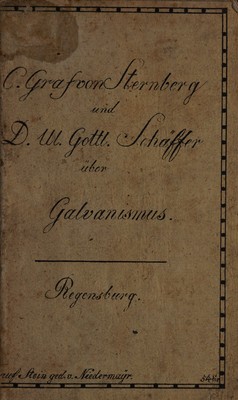 C. Graf von Sternberg
und
D. W. Gottl. Schäffer
über
Galvanismus.
Regensburg.
auf Stein ged. v. Niedermaÿr.